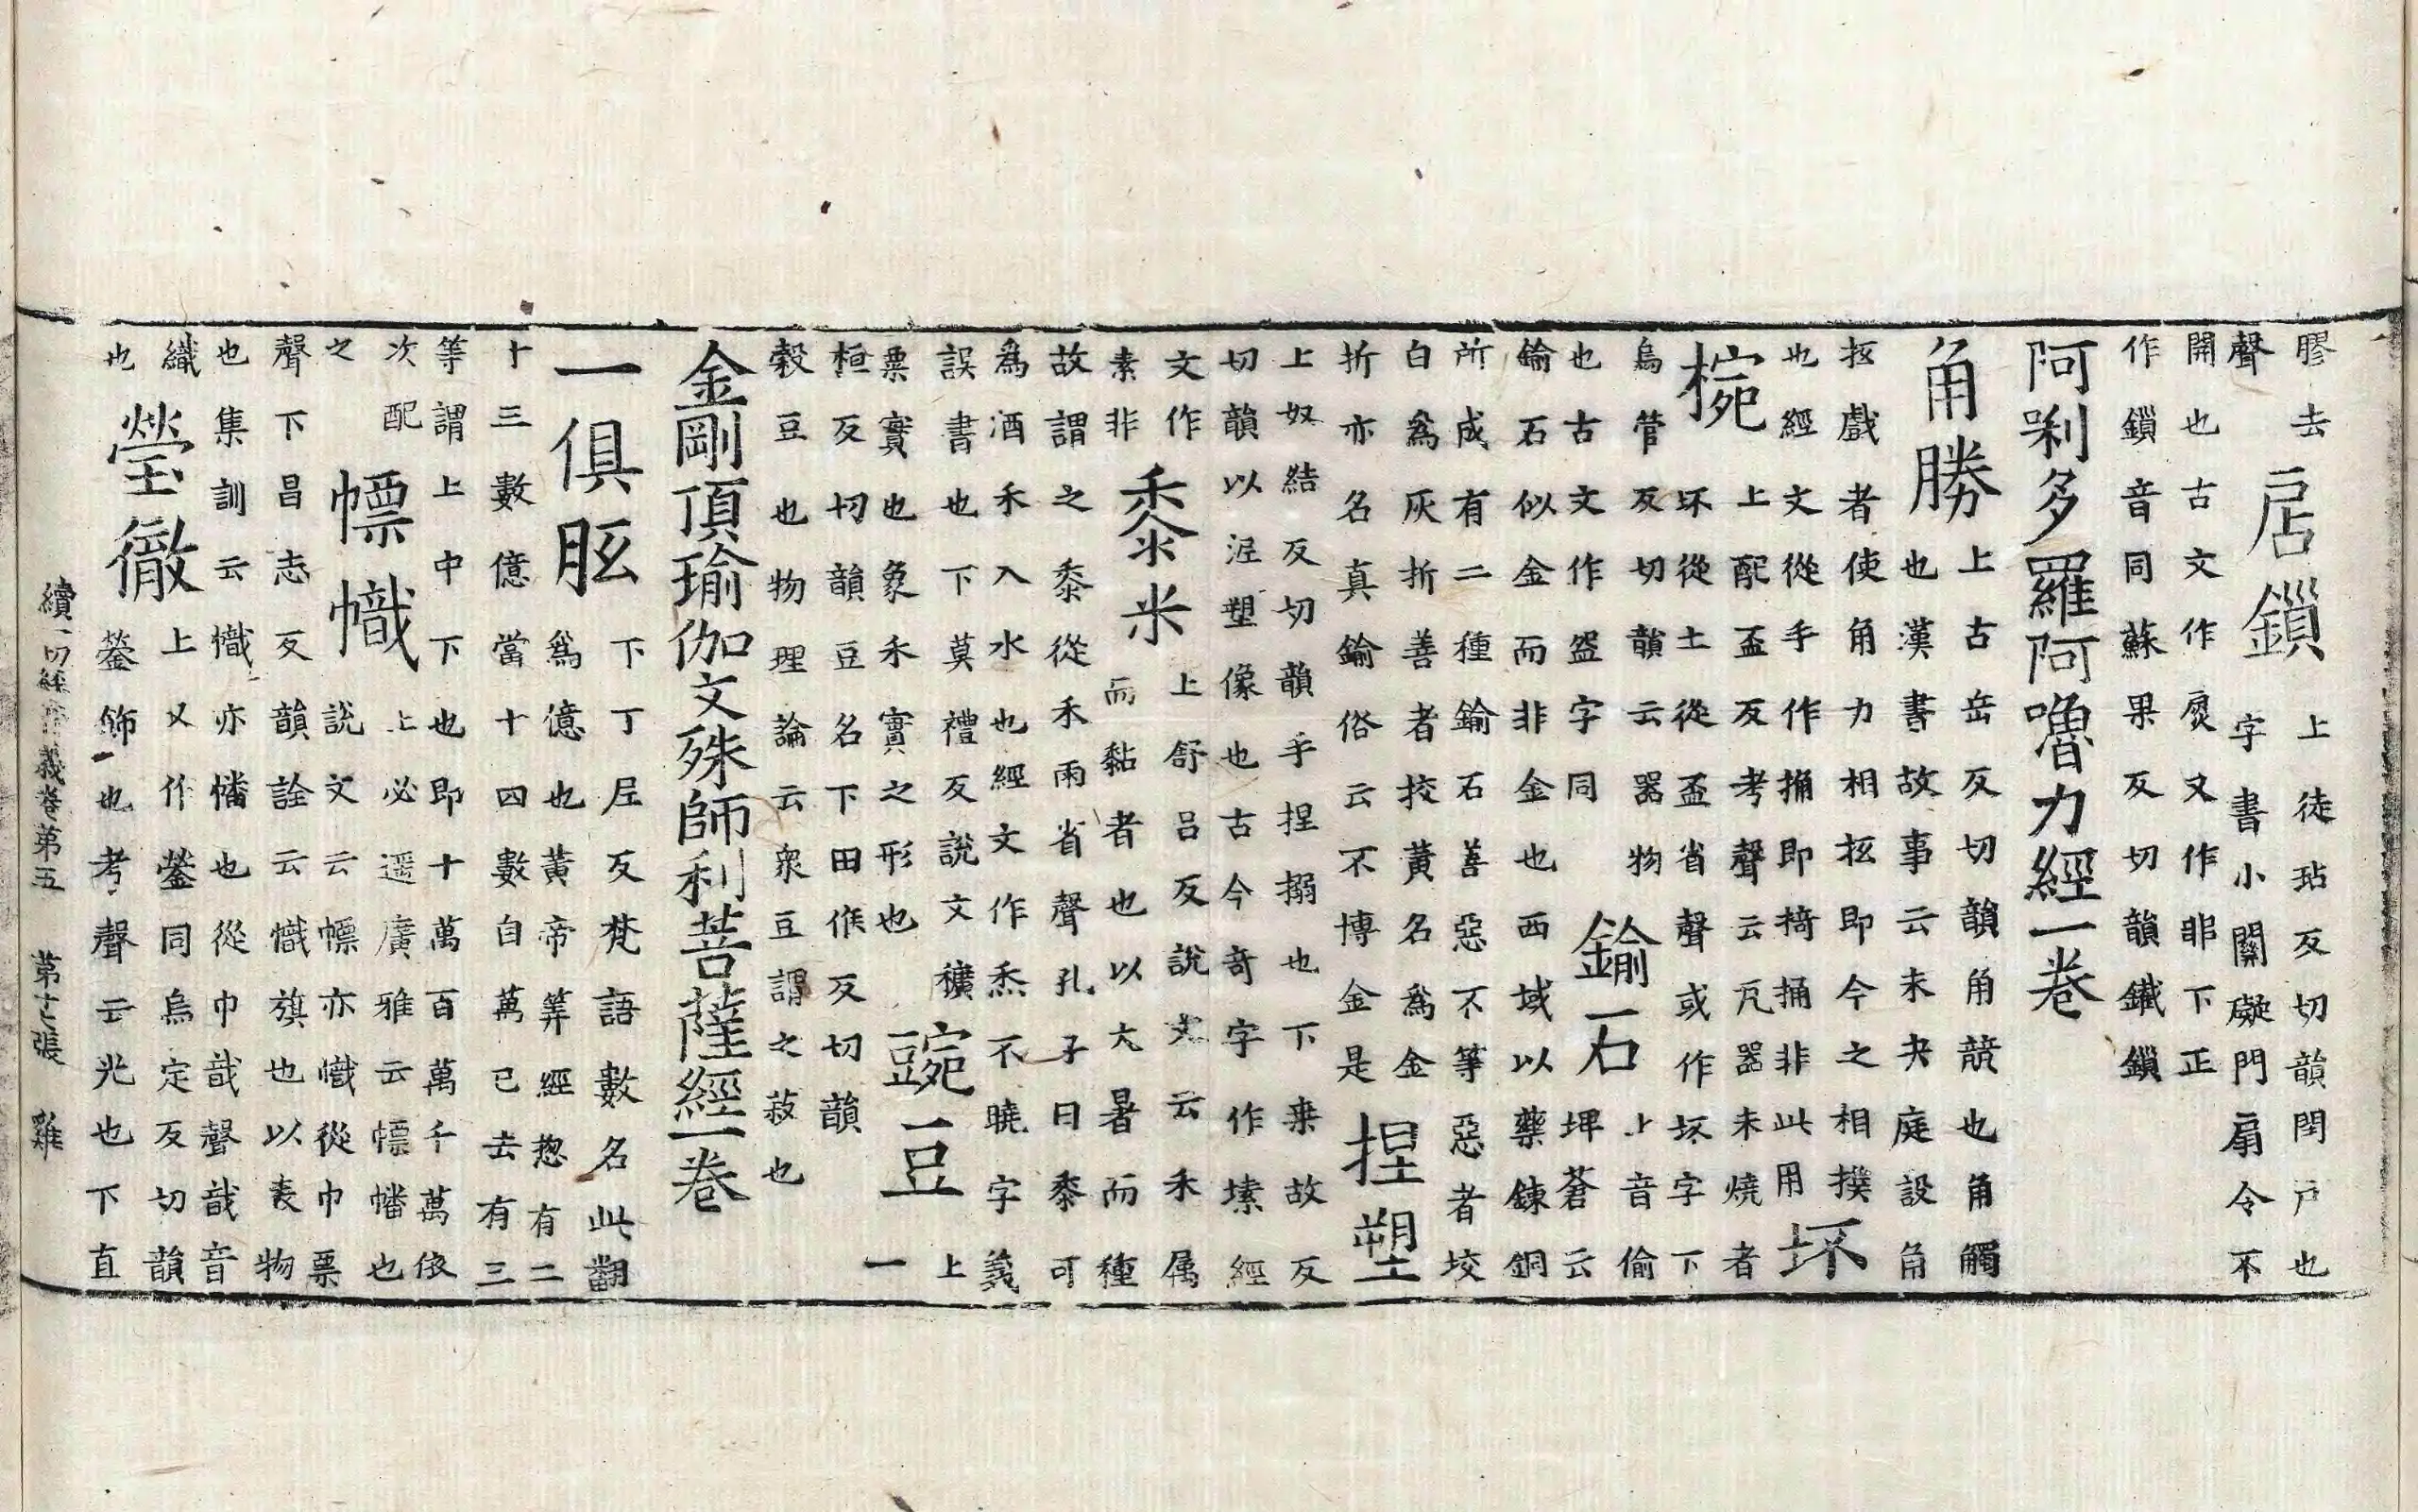 膠去
聲
扂鏁
上徒玷反切韻閉户也
字書小關礙門扇令不
開也古文作扊又作非下正
作鏁音同蘇果反切韻鐵鏁
阿唎多羅阿嚕力經一卷
角勝
上古岳反切韻角競也角觸
也漢書故事云未央庭設角
抵戲者使角力相抵即今之相撲
也經文從手作捔即掎捔非此用
坏
椀
上配盃反考聲云凡器未燒者
坏從土從盃省聲或作坯字下
烏管反切韻云器物
也古文作盌字同
鍮石
上音偷
埤蒼云
鍮石似金而非金也西域以藥鍊銅
所成有二種鍮石善惡不等惡者挍
白爲灰折善者挍黃名爲金
折亦名真鍮俗云不博金是
捏塑
上奴結反切韻手捏搦也下桒故反
切韻以泥塑像也古今奇字作塐經
文作
素非
黍米
上舒呂反說文云禾属
而黏者也以大暑而種
故謂之黍從禾雨省聲孔子曰黍可
爲酒禾入水也經文作不曉字義
誤書也下莫禮反說文穬
粟實也象禾實之形也
豌豆
上
一
桓反切韻豆名下田候反切韻
穀豆也物理論云衆豆謂之菽也
金剛頂瑜伽文殊師利菩薩經一卷
一俱胝
下丁尼反梵語數名此翻
爲億也黃帝筭經惣有二
十三數億當十四數自萬已去有三
等謂上中下下也即十萬百萬千萬依
次配
之
幖幟
上必遥廣雅云幖幡也
說文云幖亦幟從巾票
聲下昌志反韻詮云幟旗也以表物
也集訓云幟亦幡也從巾戠聲戠音
織
也
瑩徹
上又作鎣同烏定反切韻
鎣飾也考聲云光也下直
續一切經音義卷第五 第十七張 雞